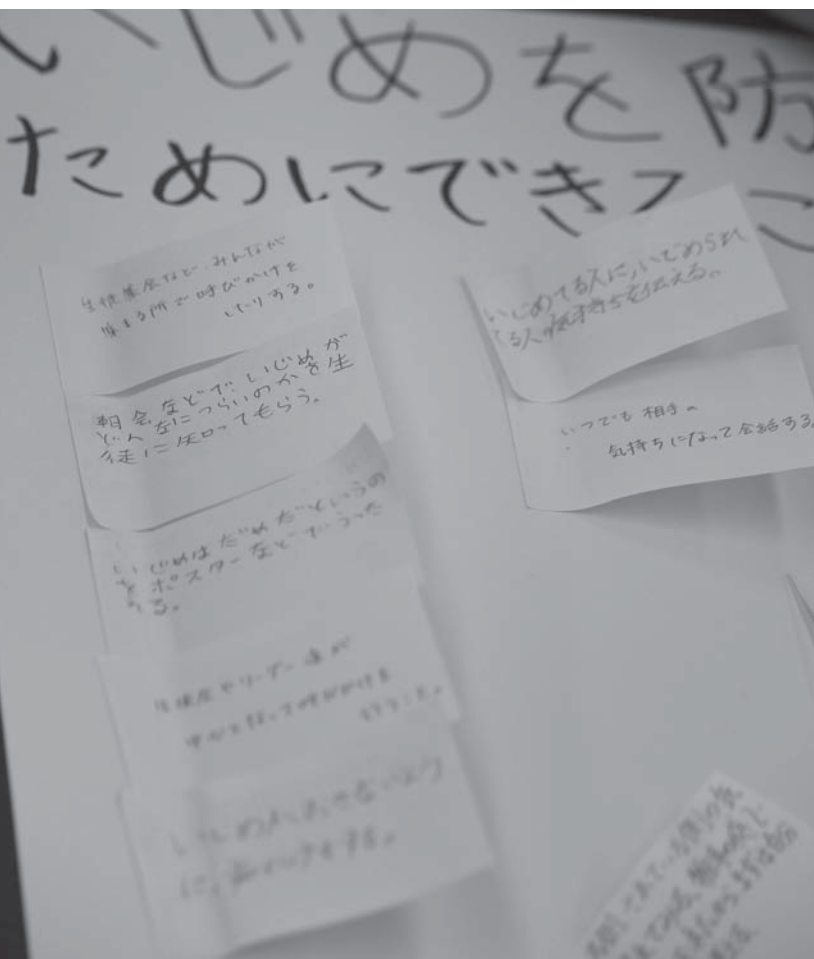 いじめを防
ためにできるこ
生徒集会など、みんなが
集まる所で呼びかけを
したりする。
朝会などで、いじめが
どんなにつらいのかを生
徒に知ってもらう。
いじめはだめだというの
をポスターなどでうった
える。
生徒会やリーダー達が
中心となって呼びかけを
行うこと。
いじめ
に
いじめてる人に、いじめられ
てる人の気持ちを伝える。
いつでも相手の
気持ちになって会話する